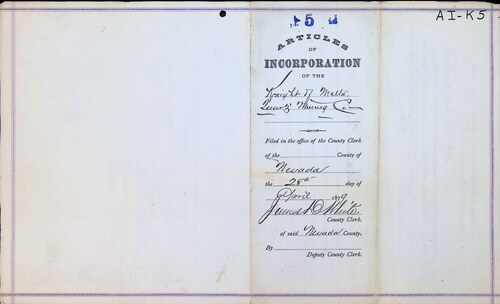 5
AI-K5
ARTICLES
OF
INCORPORATION
OF THE
Knight of Malta
Quartz Mining Co
Filed in the office of the County Clerk
of the County of
Nevada
the 28th day of
April 1879
James D White
County Clerk.
of said Nevada County.
By
Deputy County Clerk.